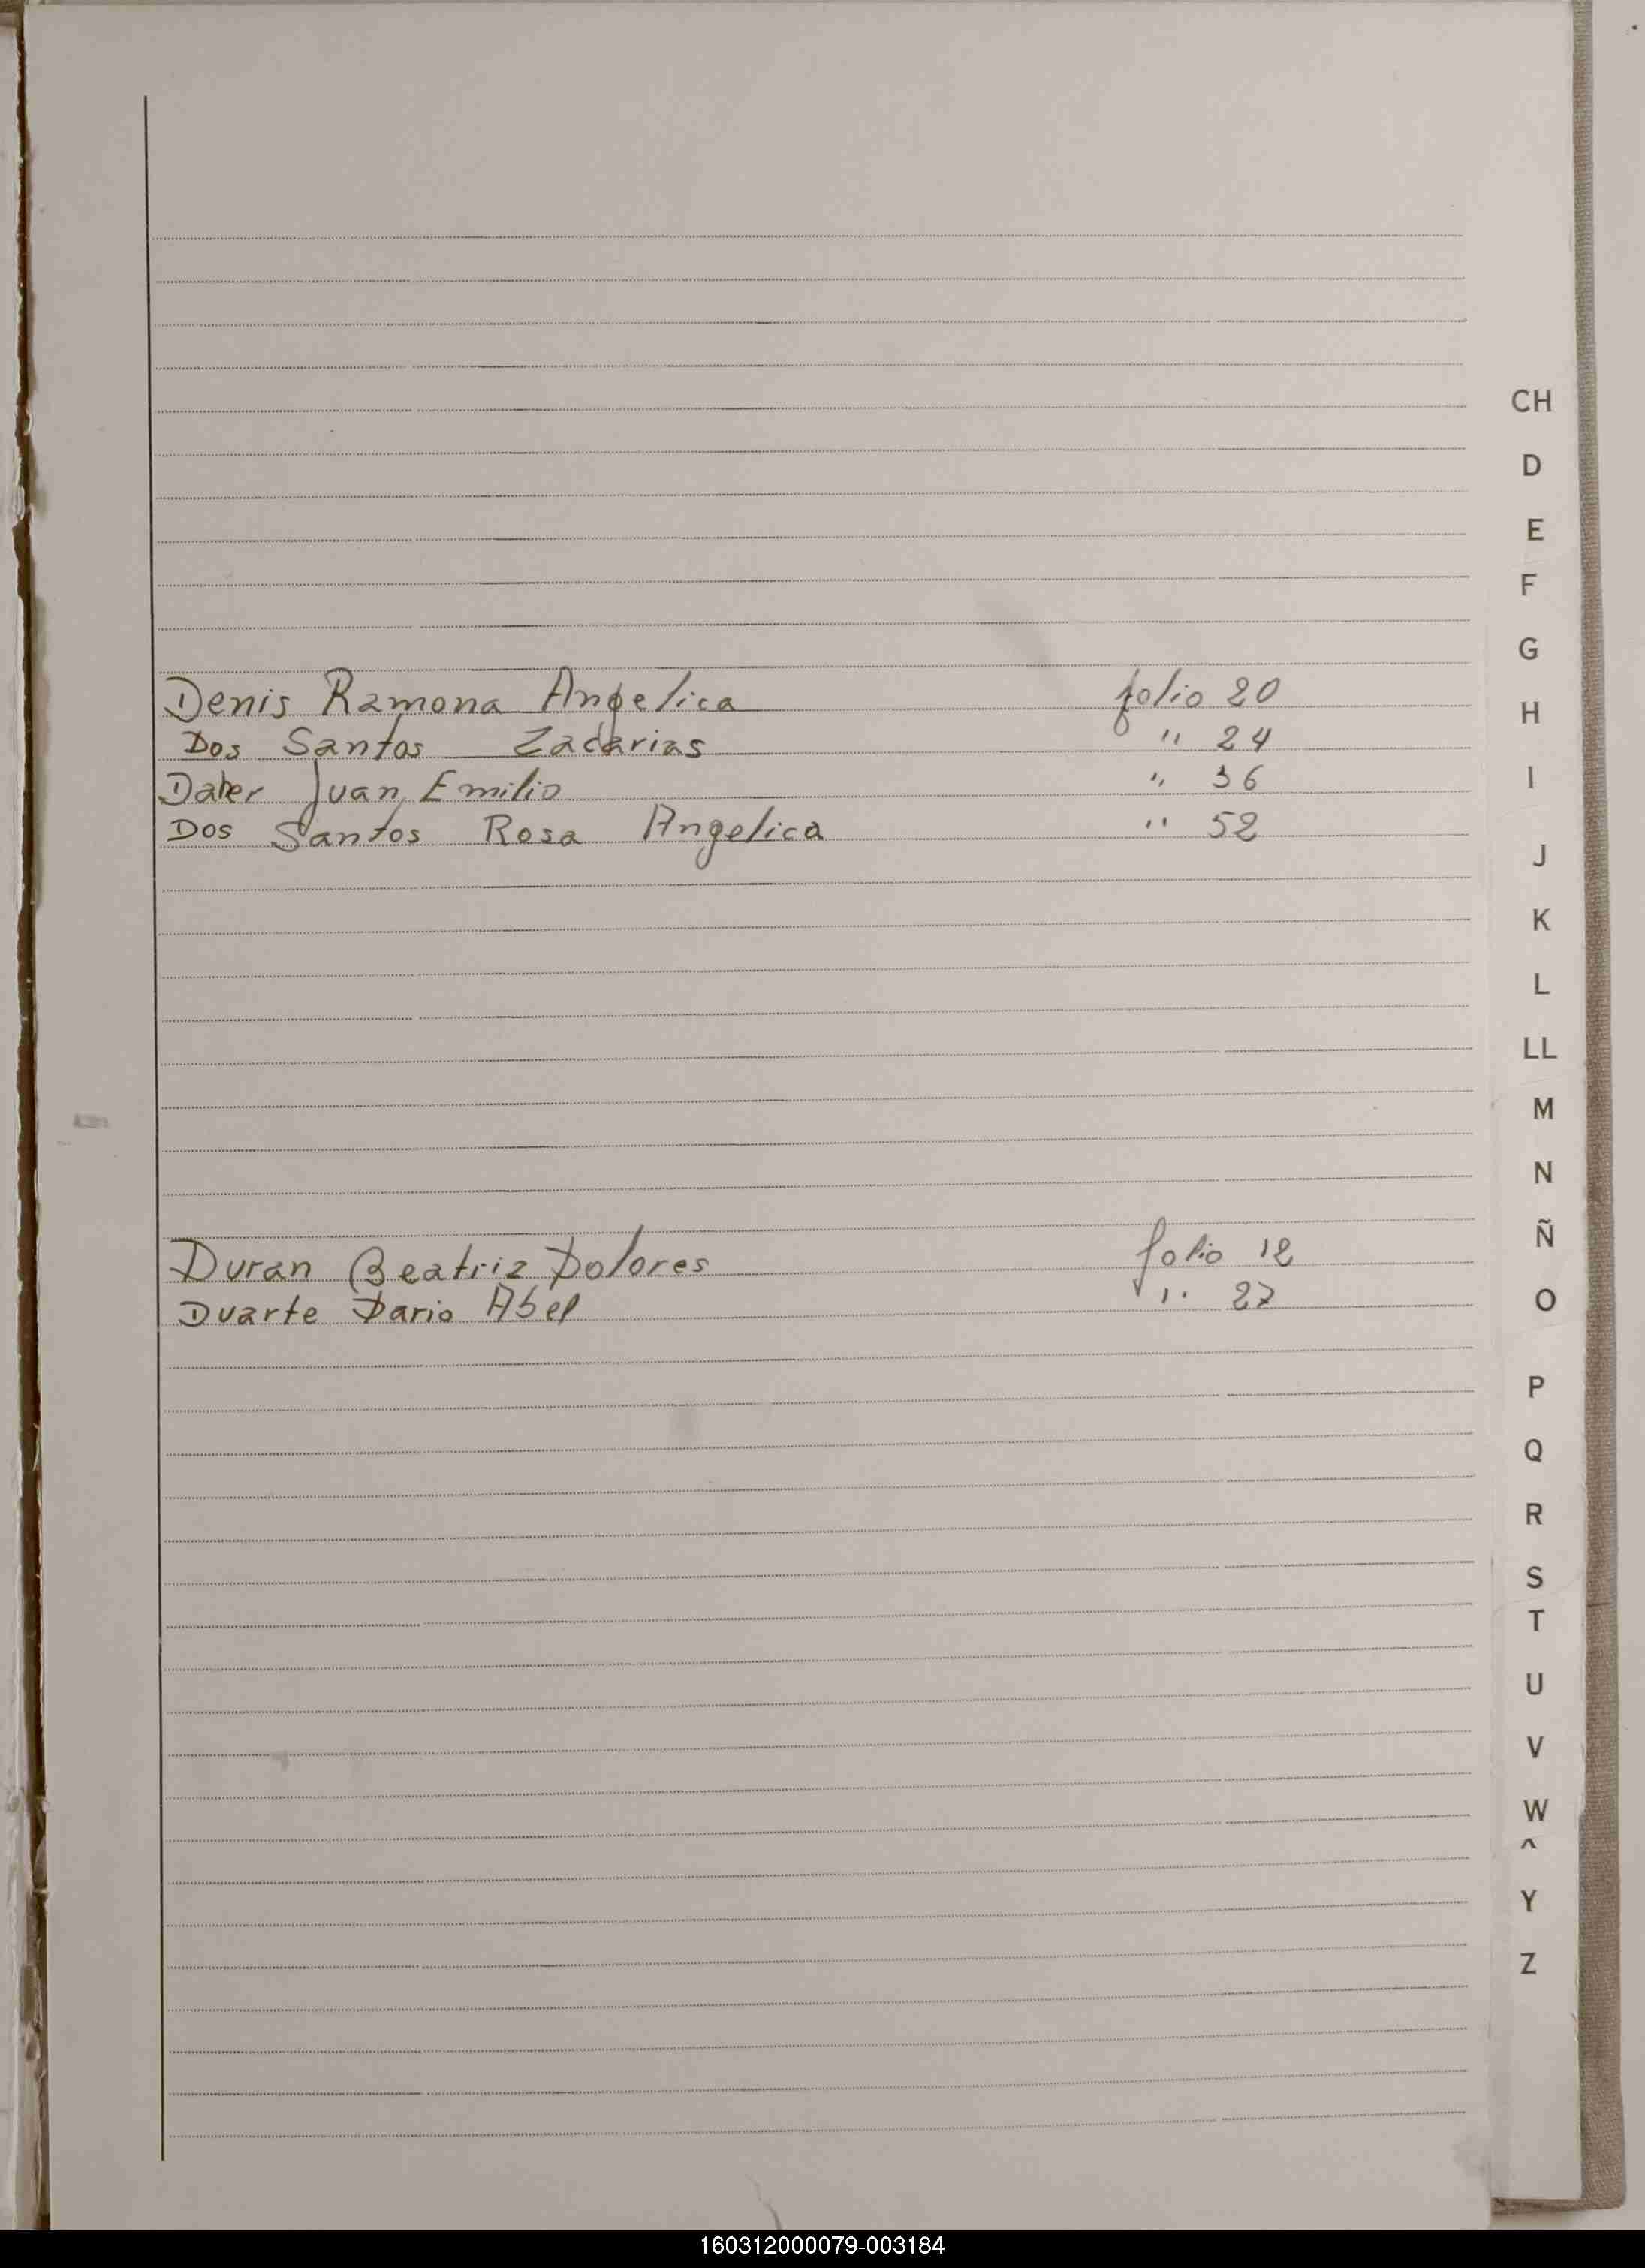 CH
D
E
F
G
Denis Ramona Angelica folio 20
H
Dos Santos Zacarias " 24
Daher Juan Emilio " 36
I
Dos Santos Rosa Angelica " 52
J
K
L
LL
M
N
Ñ
Duran Beatriz Dolores folio 12
Duarte Dario Abel " 27
O
P
Q
R
S
T
U
V
W
^
Y
Z
160312000079-003184